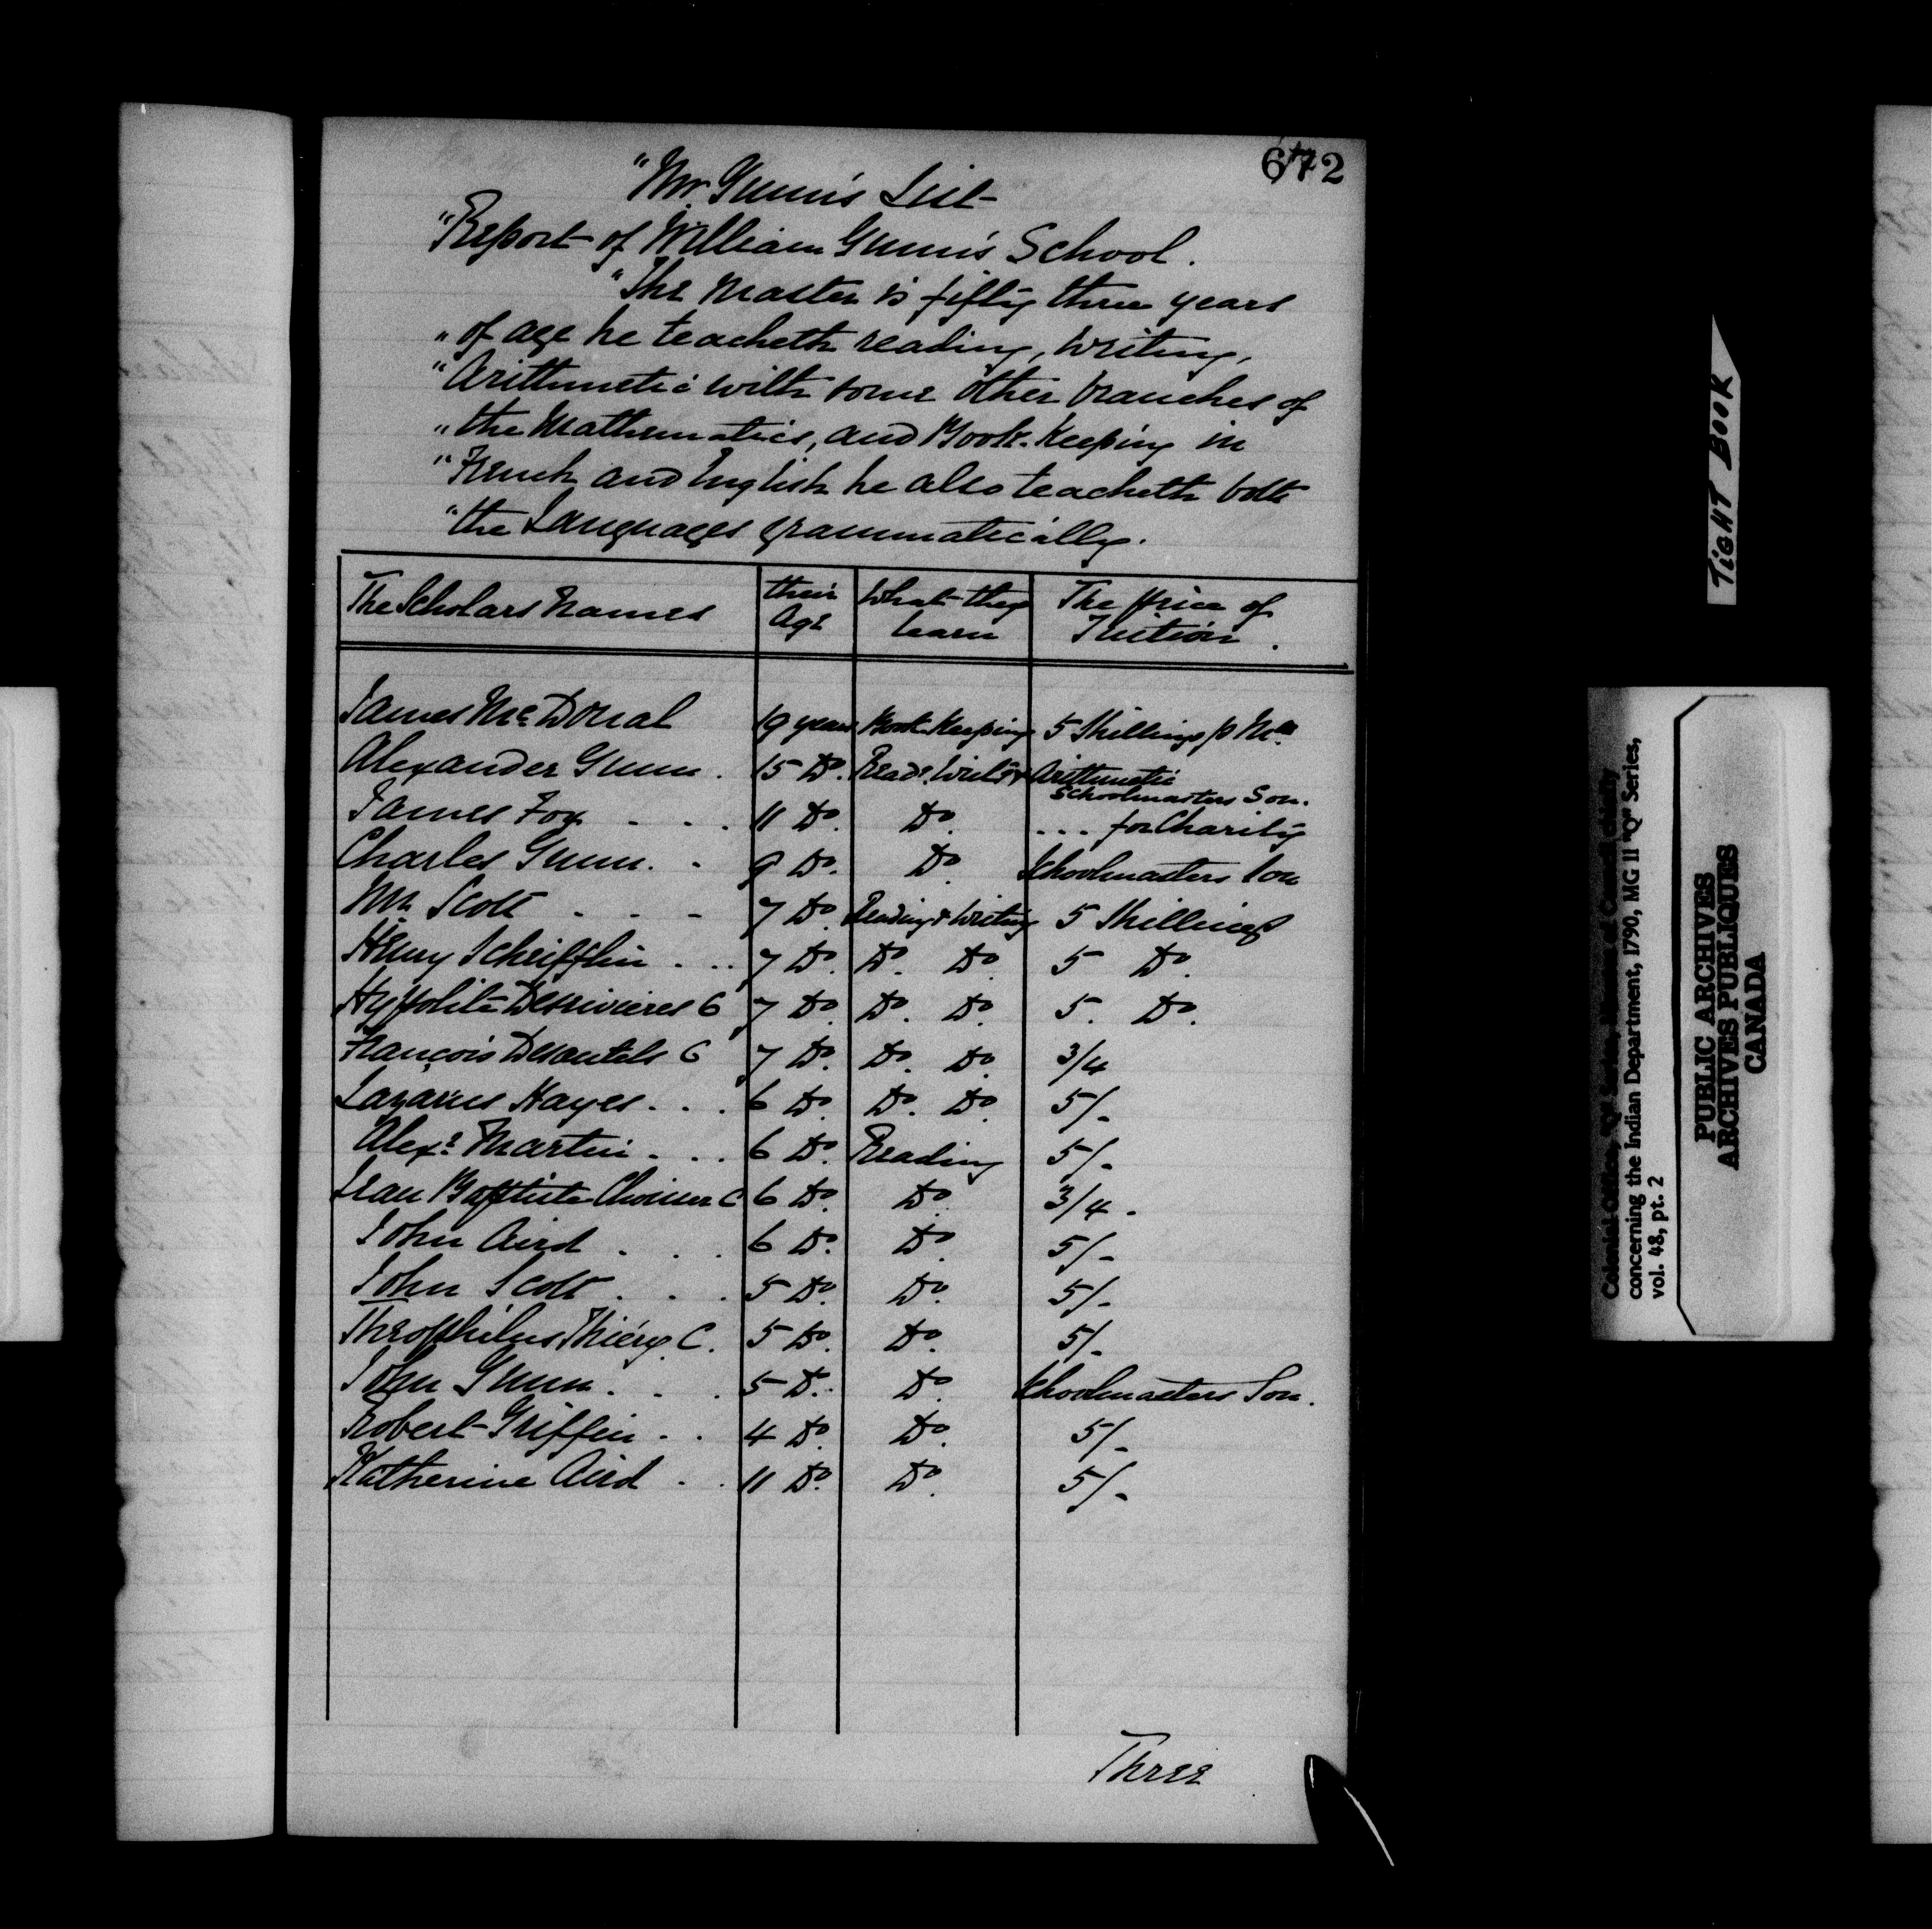 672
"Mr. Gunn's List
"Report of William Gunn's School.
"The Master is fifty three years
"of age he teacheth reading, writing,
"Arithmetic with some other branches of
"the Mathematics, and Book-Keeping in
"French and English he also teacheth both
"the Languages grammatically.
The Scholars Names | their Age | What they learn | The price of Tuition.
James McDonal | 19 years | Book Keeping | 5 Shillings p Mo.
Alexander Gunn. | 15 Do. | Readg. Writg & | Arithmetic Schoolmasters Son.
James Fox - - . | 11 Do. | Do. | ... for Charity
Charles Gunn. - | 9 Do. | Do. | Schoolmasters Son
Wm Scott - - - | 7 Do. | Reading & Writing | 5 Shillings
Henry Scheifflin . .. | 7 Do. | Do. Do. | 5 Do.
Hyppolite Desrivieres C | 7 Do. | Do. Do. | 5. Do.
François Desautels C | 7 Do. | Do. Do. | 3/4
Lazarus Hayes. . . | 6 Do. | Do. Do. | 5/-
Alexr. Martin. . . | 6 Do. | Reading | 5/-
Jean Baptiste C | 6 Do. | Do. | 3/4 -
John Aird . . . | 6 Do. | Do. | 5/-
John Scott . . . | 5 Do. | Do. | 5/-
Theophilus Thiéry C. | 5 Do. | Do. | 5/-
John Gunn. . . | 5 Do. | Do. | Schoolmasters Son.
Robert Griffin . . | 4 Do. | Do. | 5/-
Katherine Aird . . | 11 Do. | Do. | 5/-
Three
TIGHT BOOK
Colonial Office, "Q" Series, Minutes of Council chiefly
concerning the Indian Department, 1790, MG 11 "Q" Series,
vol. 48, pt. 2
PUBLIC ARCHIVES
ARCHIVES PUBLIQUES
CANADA